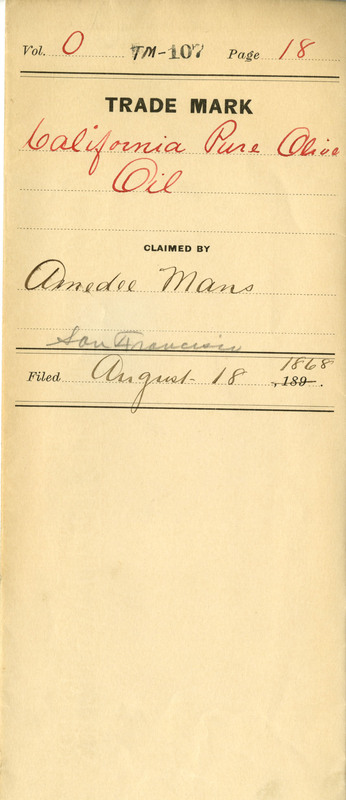 Vol. O TM-107 Page 18
TRADE MARK
California Pure Olive
Oil
CLAIMED BY
Amedee Mans
San Francisco
1868
Filed August 18, 189 .